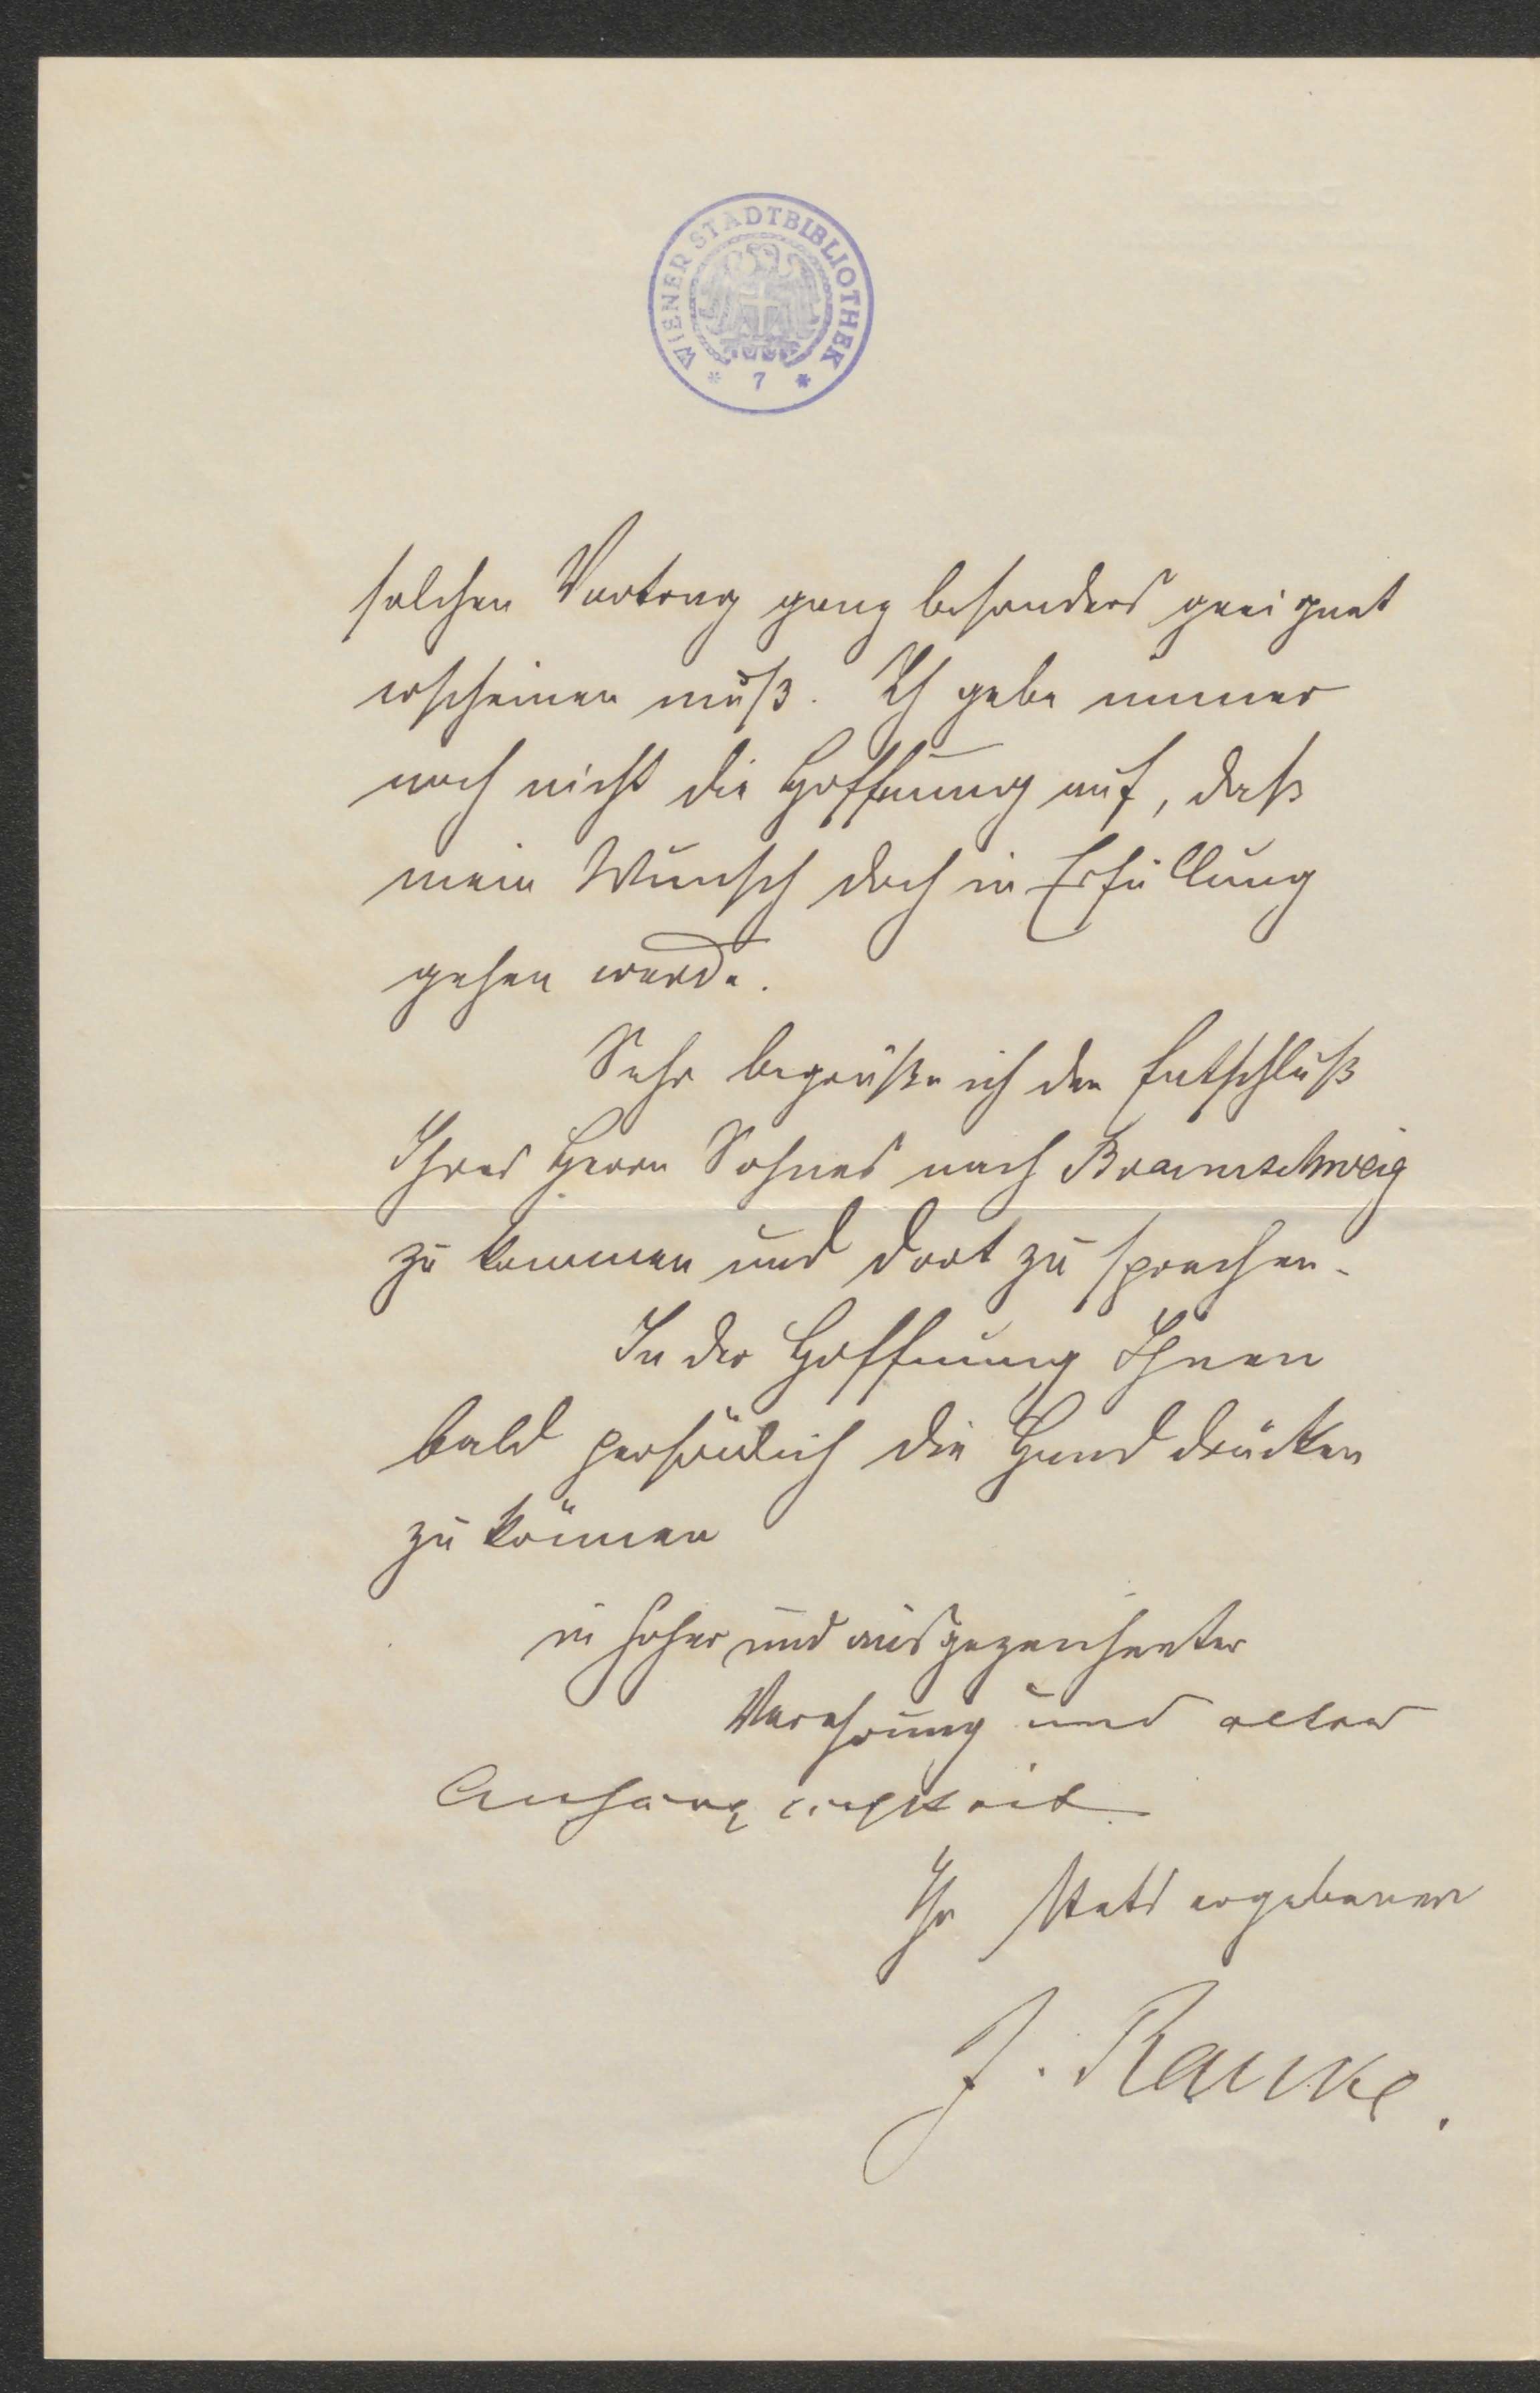 WIENER STADTBIBLIOTHEK
* 7 *
solchen Vortrag ganz besonders geeignet
erscheinen muß. Ich gebe immer
noch nicht die Hoffnung auf, daß
mein Wunsch doch in Erfüllung
gehen werde.
Sehr begrüße ich den Entschluß
Ihres Herrn Sohnes nach Braunschweig
zu kommen und dort zu sprechen.
In der Hoffnung Ihnen
bald persönlich die Hand drücken
zu können
in hoher und ausgezeichneter
Verehrung und alter
Anhänglichkeit
Ihr stets ergebener
J. Ranke.